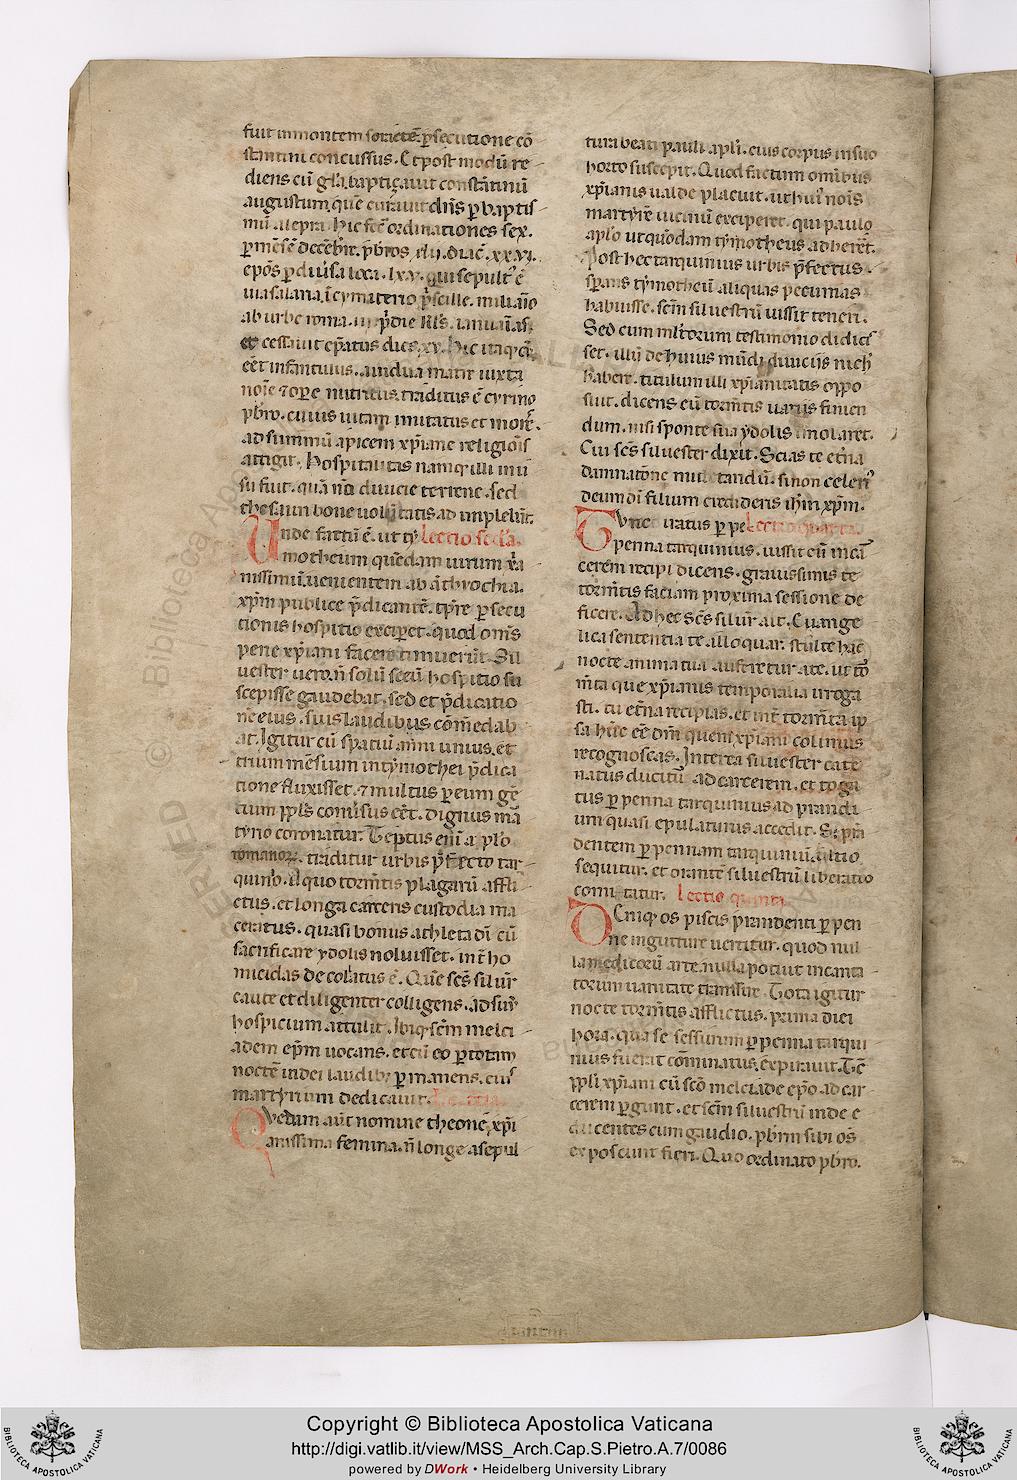 fuit in montem soracte. ꝑsecutione cō
stantini concussus. Et post modū re
diens cū gl̄a baptiçauit constātinū
augustum, quē curauit dn̄s ꝑ baptis
mū a lepra. hic fec̄ ordinationes sex.
ꝑ mēsē decēbr̄. p̄bros diac̄. xxvi.
ep̄os ꝑ diūsa loca. lxv. qui sepult᾽ ē
uia salaria, ī cymiterio p̄scille. miliario
ab urbe roma. iii p̄die kl̄s. ianuarias.
et cessauit ep̄atus dies. xv. hic itaq; cū
eēt infantulus. a uidua matre iuxta
nom̄e ⁊ oꝑe nutritus, traditus ē cyrino
p̄bro. cuius uitam imitatus et more᷒.
ad summū apicem xp̄iane religiōis
attigit. hospitalitas namq; illi in ui
su fuit. quā n̄ diuicie terrene. sed
thesaurum bone uolūtatis adimplebat.
Unde factū ē. ut ty Lectio sec̄da.
motheum quēdam uirum xr̄a
nissimū uenientem ab āthiochia.
xp̄m publice p̄dicantē. tp̄re ꝑsecu
tionis hospitio exciꝑet. quod om̄s
pene xp̄iani facere timuerūt. Sil
uester uero, n̄ solū secū hospitio su
scepisse gaudebat, sed et p̄dicatio
nē eius, suis laudibus cōmēdab
at. Igitur cū spatiū anni unius, et
trium mēsium in tymothei p̄dica
tione fluxisset, ⁊ multus ꝑ eum gē
tium ppl̄s conūsus eēt. dignus mar
tyrio coronatur. Ceptus eni᷒ a pl̄o
romanoꝝ. traditur urbis p̄fecto tar
quinio. a quo tormētis plagarū affli
ctus. et longa carceris custodia ma
ceratus. quasi bonus athleta dī. cū
sacrificare ydolis noluisset. int̄ ho
micidas decollatus ē. Quē sc̄s silu᷒
caute et diligenter colligens. ad suū
hospicium attulit. Ibiq; sc̄m melci
adem ep̄m uocans. et cū eo ꝑ totam
noctē in dei laudib; ꝑmanens. eius
martyrium dedicauit. Lec. tercia.
Quedam aūt nomine theone, xp̄i
anissima femina. n̄ longe a sepul
tura beati pauli apl̄i. eius corpus in suo
horto suscepit. Quod factum omībus
xp̄ianis ualde placuit. ut hui᷒ noīs
martyrē uicinū exciperet. qui paulo
apl̄o ut quōdam tymotheus adhereret.
Post hec tarquinius urbis p̄fectus.
sperans tymotheū aliquas pecunias
habuisse. sc̄m siluestrū iussit teneri.
Sed cum multorum testimonio didicis
set. illū de huius mūdi diuicijs nich᷒
habere. titulum illi xp̄ianitatis oppo
suit. dicens eū tormētis uarijs finien
dum. nisi sponte sua ydolis īmolaret.
Cui sc̄s siluester dixit. Scias te etn̄a
damnatione multandū. si non celeri᷒
deum dī filium credideris ihm̄ xp̄m.
Tunc iratus ꝑpe Lectio quarta.
penna tarquinius. iussit eū in car
cerem recipi dicens. grauissimis te
tormētis faciam proxima sessione de
ficere. Ad hec sc̄s silu᷒ ait. Euange
lica sententia te alloquar. stulte hac
nocte anima tua auferetur a te. ut tor
mēta que xp̄ianis temporalia irroga
sti. tu etn̄a recipias. et int̄ tormēta ip
sa hūc eē dm̄ quem xp̄iani colimus
recognoscas. Interea siluester cate
natus ducitu᷒ ad carcerem. et roga
tus ꝑpenna tarquinius ad prandi
um quasi epulaturus accedit. Et pran
dentem ꝑpennam tarquiniū ultio
sequitur. et orantē siluestrū liberatio
comitatur. Lectio quinta.
Deniq; os piscis prandenti ꝑpen
ne in gutture uertitur. quod nul
la medicorū arte. nulla potuit incanta
torum uanitate transire. Tota igitur
nocte tormētis afflictus. prima diei
hora. qua se sessurum ꝑpenna tarqui
nius fuerat cōminatus expirauit. Tc̄
ppl̄i xp̄iani cū sc̄o melciade ep̄o ad car
cerem ꝑgunt. et sc̄m siluestrū inde e
ducentes cum gaudio. p̄brm̄ sibi os̄
exposcunt fieri. Quo ordinato p̄bro.
Copyright © Biblioteca Apostolica Vaticana
http://digi.vatlib.it/view/MSS_Arch.Cap.S.Pietro.A.7/0086
powered by DWork • Heidelberg University Library
BIBLIOTECA APOSTOLICA VATICANA
BIBLIOTECA APOSTOLICA VATICANA